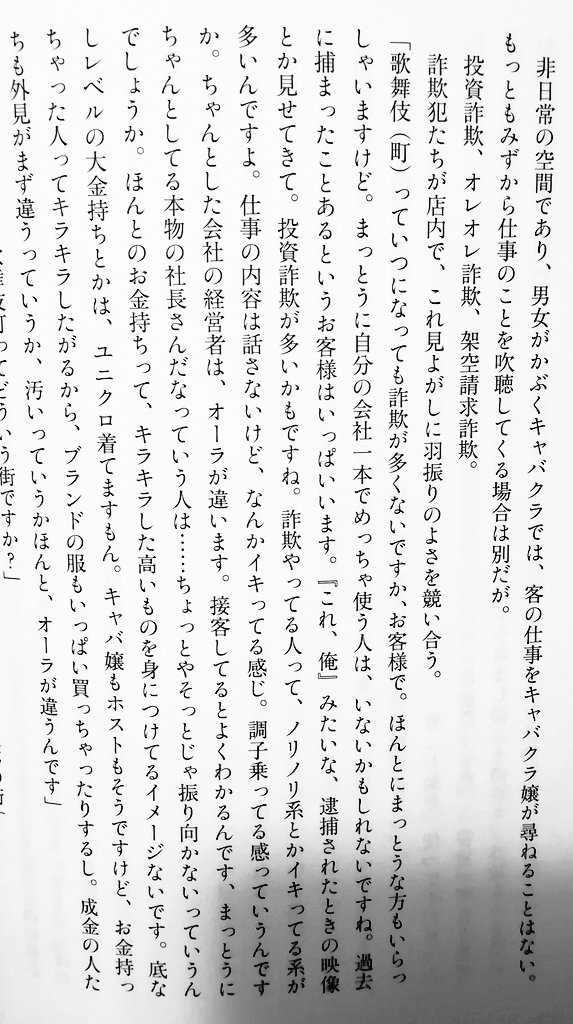 非日常の空間であり、男女がかぶくキャバクラでは、客の仕事をキャバクラ嬢が尋ねることはない。
もっともみずから仕事のことを吹聴してくる場合は別だが。
投資詐欺、オレオレ詐欺、架空請求詐欺。
詐欺犯たちが店内で、これ見よがしに羽振りのよさを競い合う。
「歌舞伎（町）っていつになっても詐欺が多くないですか、お客様で。ほんとにまっとうな方もいらっ
しゃいますけど。まっとうに自分の会社一本でめっちゃ使う人は、いないかもしれないですね。過去
に捕まったことあるというお客様はいっぱいいます。『これ、俺』みたいな、逮捕されたときの映像
とか見せてきて。投資詐欺が多いかもですね。詐欺やってる人って、ノリノリ系とかイキってる系が
多いんですよ。仕事の内容は話さないけど、なんかイキってる感じ。調子乗ってる感っていうんです
か。ちゃんとした会社の経営者は、オーラが違います。接客してるとよくわかるんです、まっとうに
ちゃんとしてる本物の社長さんだなっていう人は……ちょっとやそっとじゃ振り向かないっていうん
でしょうか。ほんとのお金持ちって、キラキラした高いものを身につけてるイメージないです。底な
しレベルの大金持ちとかは、ユニクロ着てますもん。キャバ嬢もホストもそうですけど、お金持っ
ちゃった人ってキラキラしたがるから、ブランドの服もいっぱい買っちゃったりするし。成金の人た
ちも外見がまず違うっていうか、汚いっていうかほんと、オーラが違うんです」
ってどういう街ですか？」